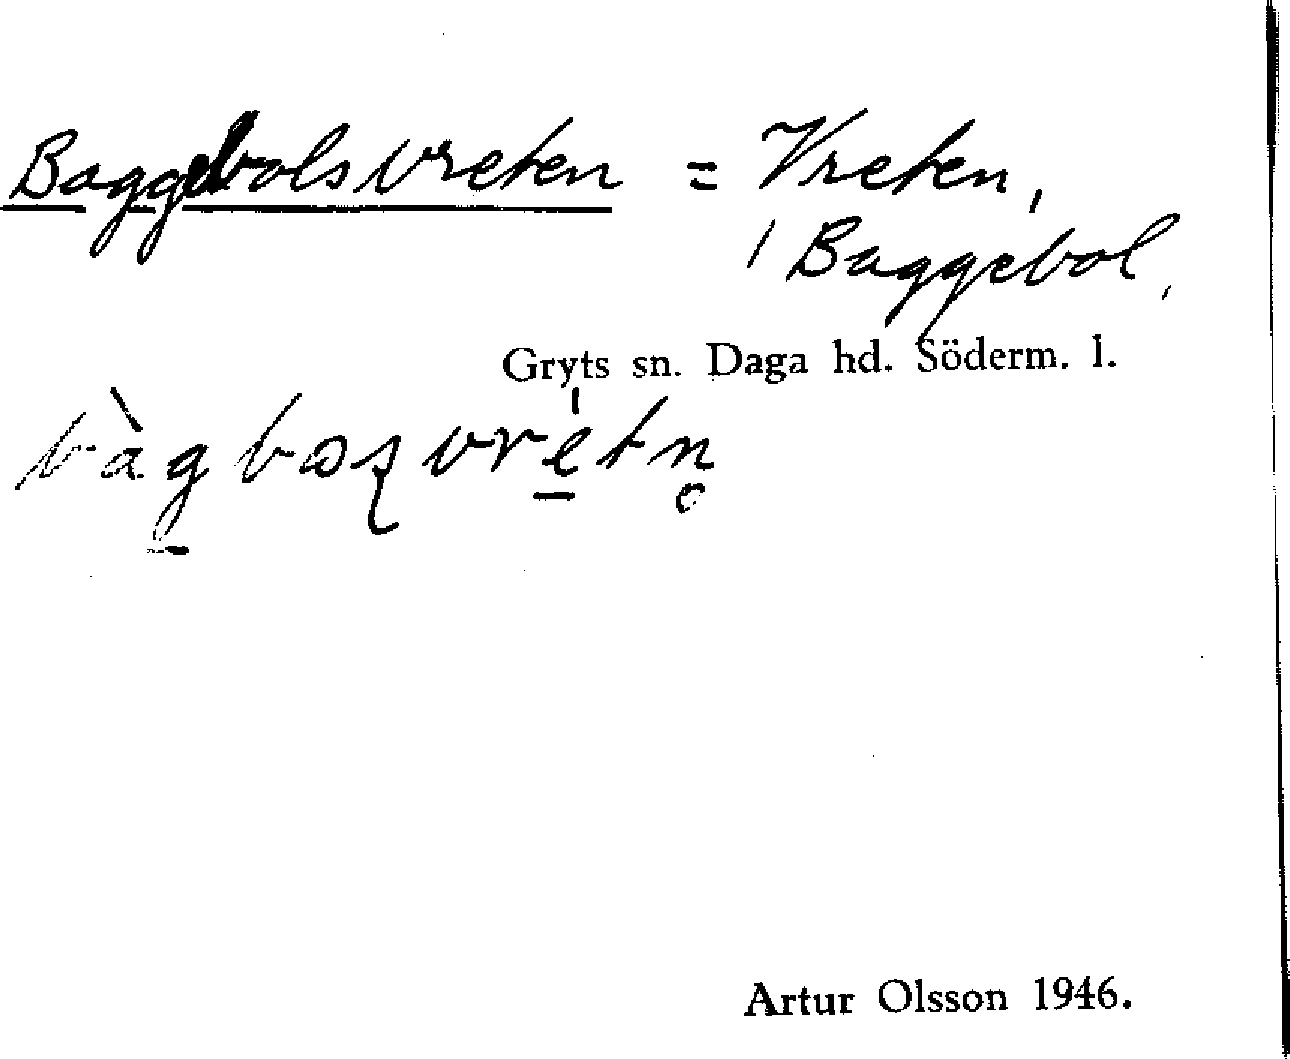 Baggebolsvreten = Vreten,
1 Baggebol,
Gryts sn. Daga hd. Söderm. l.
Artur Olsson 1946.